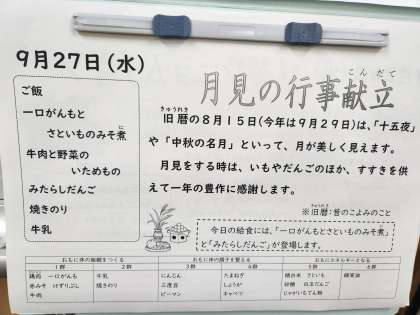 9月27日(水)
月見の行事献立
こんだて
ご飯
一口がんもと
さといものみそ煮
に
牛肉と野菜の
いためもの
みたらしだんご
焼きのり
牛乳
きゅうれき
旧暦の8月15日(今年は9月29日)は、「十五夜」
や「中秋の名月」といって、月が美しく見えます。
月見をする時は、いもやだんごのほか、すすきを供
えて一年の豊作に感謝します。
きゅうれき
※旧暦：昔のこよみのこと
今日の給食には、「一口がんもとさといものみそ煮」
と「みたらしだんご」が登場します。
おもに体の組織をつくる
おもに体の調子を整える
おもにエネルギーとなる
1群 2群 3群 4群 5群 6群
鶏肉 一口がんも 牛乳 にんじん たまねぎ 精白米 さといも
赤みそ けずりぶし 焼きのり 三度豆 しょうが 砂糖 白玉だんご
牛肉 ピーマン キャベツ じゃがいもでん粉